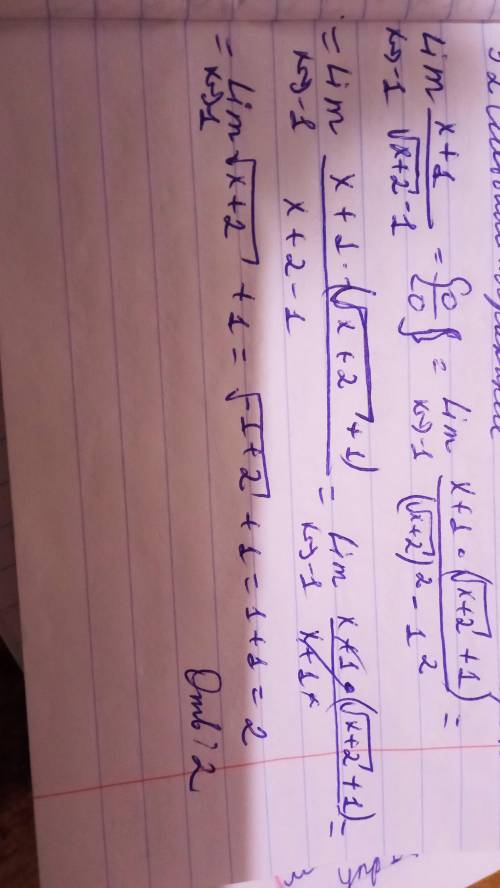 Lim x→-1 x+1 / √x+2 - 1 = {0/0} = Lim x→-1 x+1·(√x+2 + 1) / (√x+2)² - 1² =
= Lim x→-1 x+1·(√x+2 + 1) / x+2-1 = Lim x→-1 x+1·(√x+2 + 1) / x+1 =
= Lim x→-1 √x+2 + 1 = √-1+2 + 1 = 1+1 = 2
Отв: 2